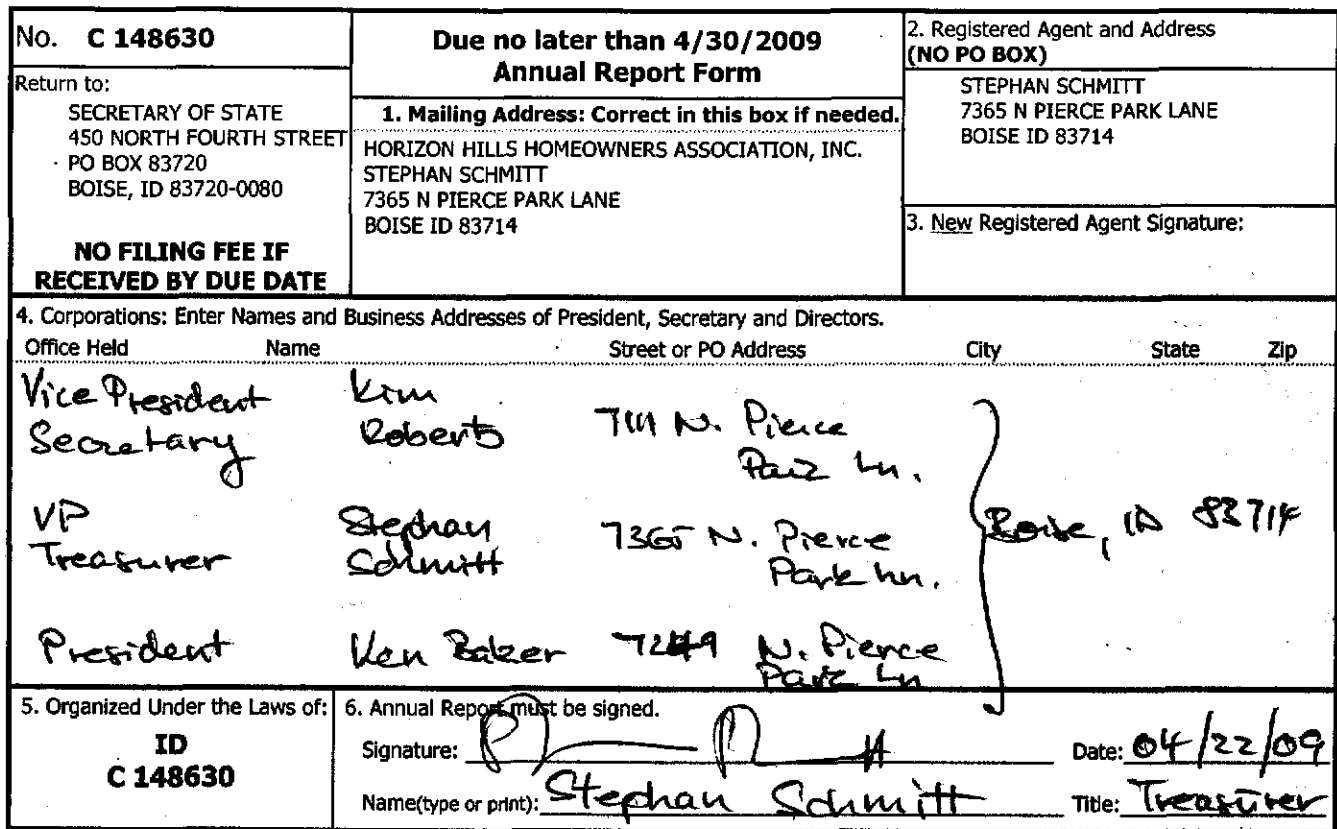 No. C 148630
Return to:
SECRETARY OF STATE
450 NORTH FOURTH STREET
PO BOX 83720
BOISE, ID 83720-0080
NO FILING FEE IF
RECEIVED BY DUE DATE
Due no later than 4/30/2009
Annual Report Form
1. Mailing Address: Correct in this box if needed.
HORIZON HILLS HOMEOWNERS ASSOCIATION, INC.
STEPHAN SCHMITT
7365 N PIERCE PARK LANE
BOISE ID 83714
2. Registered Agent and Address
(NO PO BOX)
STEPHAN SCHMITT
7365 N PIERCE PARK LANE
BOISE ID 83714
3. New Registered Agent Signature:
4. Corporations: Enter Names and Business Addresses of President, Secretary and Directors.
Office Held Name Street or PO Address City State Zip
Vice President Kim
Secretary Roberts N. Pierce
Park Ln.
VP Stephan 7365 N. Pierce Boise, ID 83714
Treasurer Schmitt Park Ln.
President Ken Baker N. Pierce
Park Ln
5. Organized Under the Laws of:
ID
C 148630
6. Annual Report must be signed.
Signature: Date: 04/22/09
Name(type or print): Stephan Schmitt Title: Treasurer